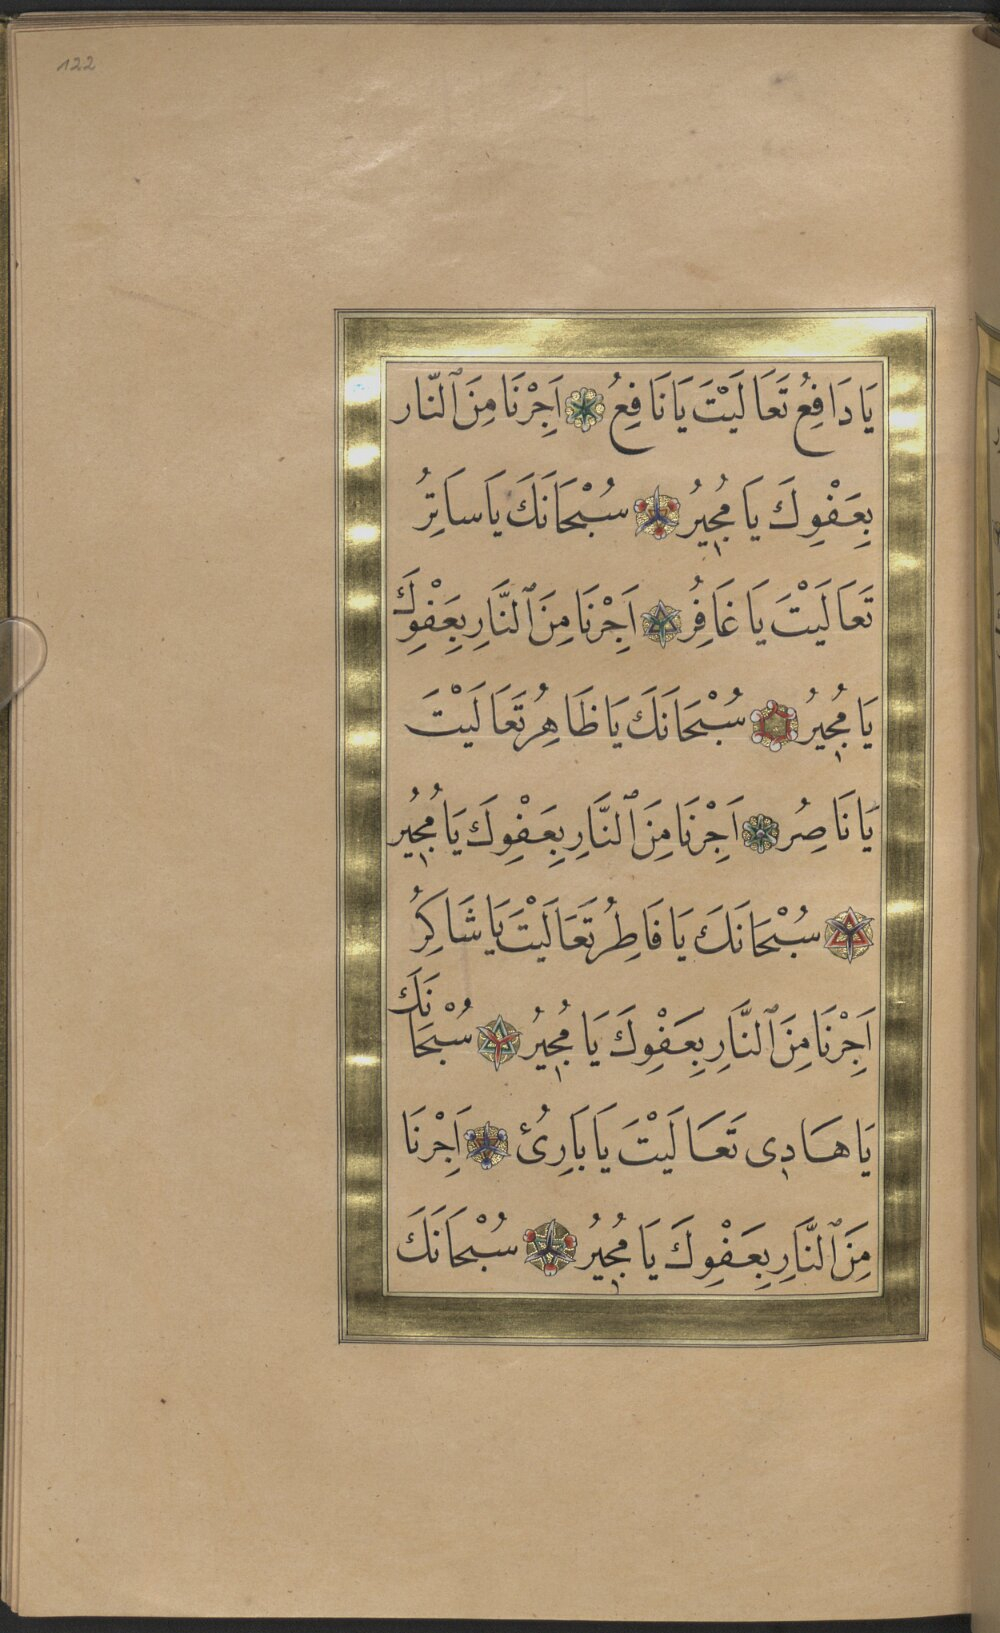 122
يَا دَافِعُ تَعَالَيْتَ يَا نَافِعُ اَجِرْنَا مِنَ ٱلنَّار
بِعَفْوِكَ يَا مُجِيرُ سُبْحَانَكَ يَا سَاتِرُ
تَعَالَيْتَ يَا غَافِرُ اَجِرْنَا مِنَ ٱلنَّارِ بِعَفْوِكَ
يَا مُجِيرُ سُبْحَانَكَ يَا ظَاهِرُ تَعَالَيْتَ
يَا نَاصِرُ اَجِرْنَا مِنَ ٱلنَّارِ بِعَفْوِكَ يَا مُجِيرُ
سُبْحَانَكَ يَا فَاطِرُ تَعَالَيْتَ يَا شَاكِرُ
اَجِرْنَا مِنَ ٱلنَّارِ بِعَفْوِكَ يَا مُجِيرُ سُبْحَانَكَ
يَا هَادِى تَعَالَيْتَ يَا بَارِئُ اَجِرْنَا
مِنَ ٱلنَّارِ بِعَفْوِكَ يَا مُجِيرُ سُبْحَانَكَ